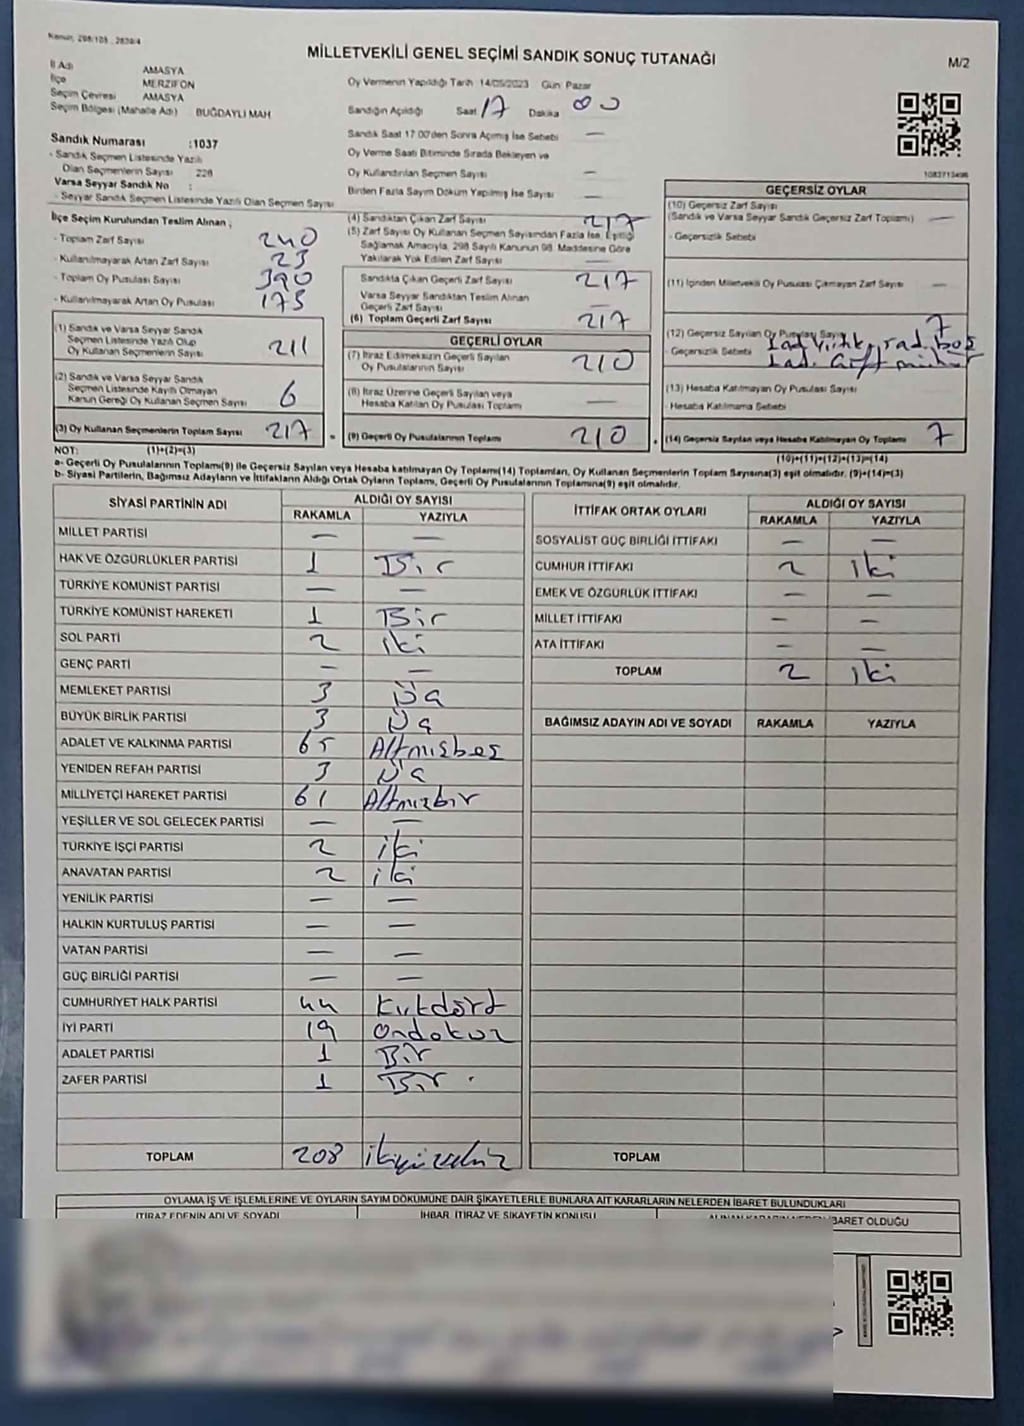 Kanun, 298/105 , 2839/4
MİLLETVEKİLİ GENEL SEÇİMİ SANDIK SONUÇ TUTANAĞI
M/2
İl Adı AMASYA
İlçe MERZİFON
Seçim Çevresi AMASYA
Seçim Bölgesi (Mahalle Adı) BUĞDAYLI MAH
Sandık Numarası :1037
- Sandık Seçmen Listesinde Yazılı
Olan Seçmenlerin Sayısı 226
Varsa Seyyar Sandık No :
- Seyyar Sandık Seçmen Listesinde Yazılı Olan Seçmen Sayısı
Oy Vermenin Yapıldığı Tarih 14/05/2023 Gün Pazar
Sandığın Açıldığı Saat 17 Dakika 00
Sandık Saat 17.00'den Sonra Açımış İse Sebebi —
Oy Verme Saati Bitiminde Sırada Bekleyen ve
Oy Kullandırılan Seçmen Sayısı —
Birden Fazla Sayım Döküm Yapılmış İse Sayısı —
1083713496
İlçe Seçim Kurulundan Teslim Alınan ;
- Toplam Zarf Sayısı 240
- Kullanılmayarak Artan Zarf Sayısı 23
- Toplam Oy Pusulası Sayısı 390
- Kullanılmayarak Artan Oy Pusulası 173
(1) Sandık ve Varsa Seyyar Sandık
Seçmen Listesinde Yazılı Olup
Oy Kullanan Seçmenlerin Sayısı 211
(2) Sandık ve Varsa Seyyar Sandık
Seçmen Listesinde Kayıtlı Olmayan
Kanun Gereği Oy Kullanan Seçmen Sayısı 6
(3) Oy Kullanan Seçmenlerin Toplam Sayısı 217
(4) Sandıktan Çıkan Zarf Sayısı 217
(5) Zarf Sayısı Oy Kullanan Seçmen Sayısından Fazla İse, Eşitliği
Sağlamak Amacıyla, 298 Sayılı Kanunun 98. Maddesine Göre
Yakılarak Yok Edilen Zarf Sayısı —
Sandıkta Çıkan Geçerli Zarf Sayısı 217
Varsa Seyyar Sandıktan Teslim Alınan
Geçerli Zarf Sayısı —
(6) Toplam Geçerli Zarf Sayısı 217
GEÇERLİ OYLAR
(7) İtiraz Edilmeksizin Geçerli Sayılan
Oy Pusulalarının Sayısı 210
(8) İtiraz Üzerine Geçerli Sayılan veya
Hesaba Katılan Oy Pusulası Toplamı —
= (9) Geçerli Oy Pusulalarının Toplamı 210
GEÇERSİZ OYLAR
(10) Geçersiz Zarf Sayısı
(Sandık ve Varsa Seyyar Sandık Geçersiz Zarf Toplamı) —
- Geçersizlik Sebebi
(11) İçinden Milletvekili Oy Pusulası Çıkmayan Zarf Sayısı —
(12) Geçersiz Sayılan Oy Pusulası Sayısı 7
- Geçersizlik Sebebi
(13) Hesaba Katılmayan Oy Pusulası Sayısı
- Hesaba Katılmama Sebebi
(14) Geçersiz Sayılan veya Hesaba Katılmayan Oy Toplamı 7
NOT: (1)+(2)=(3)
(10)+(11)+(12)+(13)=(14)
a- Geçerli Oy Pusulalarının Toplamı(9) ile Geçersiz Sayılan veya Hesaba katılmayan Oy Toplamı(14) Toplamları, Oy Kullanan Seçmenlerin Toplam Sayısına(3) eşit olmalıdır. (9)+(14)=(3)
b- Siyasi Partilerin, Bağımsız Adayların ve İttifakların Aldığı Ortak Oyların Toplamı, Geçerli Oy Pusulalarının Toplamına(9) eşit olmalıdır.
SİYASİ PARTİNİN ADI ALDIĞI OY SAYISI
RAKAMLA YAZIYLA
MİLLET PARTİSİ — —
HAK VE ÖZGÜRLÜKLER PARTİSİ 1 Bir
TÜRKİYE KOMÜNİST PARTİSİ — —
TÜRKİYE KOMÜNİST HAREKETİ 1 Bir
SOL PARTİ 2 iki
GENÇ PARTİ — —
MEMLEKET PARTİSİ 3 Üç
BÜYÜK BİRLİK PARTİSİ 3 Üç
ADALET VE KALKINMA PARTİSİ 65 Altmışbeş
YENİDEN REFAH PARTİSİ 3 Üç
MİLLİYETÇİ HAREKET PARTİSİ 61 Altmışbir
YEŞİLLER VE SOL GELECEK PARTİSİ — —
TÜRKİYE İŞÇİ PARTİSİ 2 iki
ANAVATAN PARTİSİ 2 iki
YENİLİK PARTİSİ — —
HALKIN KURTULUŞ PARTİSİ — —
VATAN PARTİSİ — —
GÜÇ BİRLİĞİ PARTİSİ — —
CUMHURİYET HALK PARTİSİ 44 Kırkdört
İYİ PARTİ 19 Ondokuz
ADALET PARTİSİ 1 Bir
ZAFER PARTİSİ 1 Bir
TOPLAM 208 ikiyüzsekiz
İTTİFAK ORTAK OYLARI ALDIĞI OY SAYISI
RAKAMLA YAZIYLA
SOSYALİST GÜÇ BİRLİĞİ İTTİFAKI — —
CUMHUR İTTİFAKI 2 iki
EMEK VE ÖZGÜRLÜK İTTİFAKI — —
MİLLET İTTİFAKI — —
ATA İTTİFAKI — —
TOPLAM 2 iki
BAĞIMSIZ ADAYIN ADI VE SOYADI RAKAMLA YAZIYLA
TOPLAM
OYLAMA İŞ VE İŞLEMLERİNE VE OYLARIN SAYIM DÖKÜMÜNE DAİR ŞİKAYETLERLE BUNLARA AİT KARARLARIN NELERDEN İBARET BULUNDUKLARI
İTİRAZ EDENİN ADI VE SOYADI İHBAR, İTİRAZ VE ŞİKAYETİN KONUSU ALINAN KARARIN NEDEN İBARET OLDUĞU